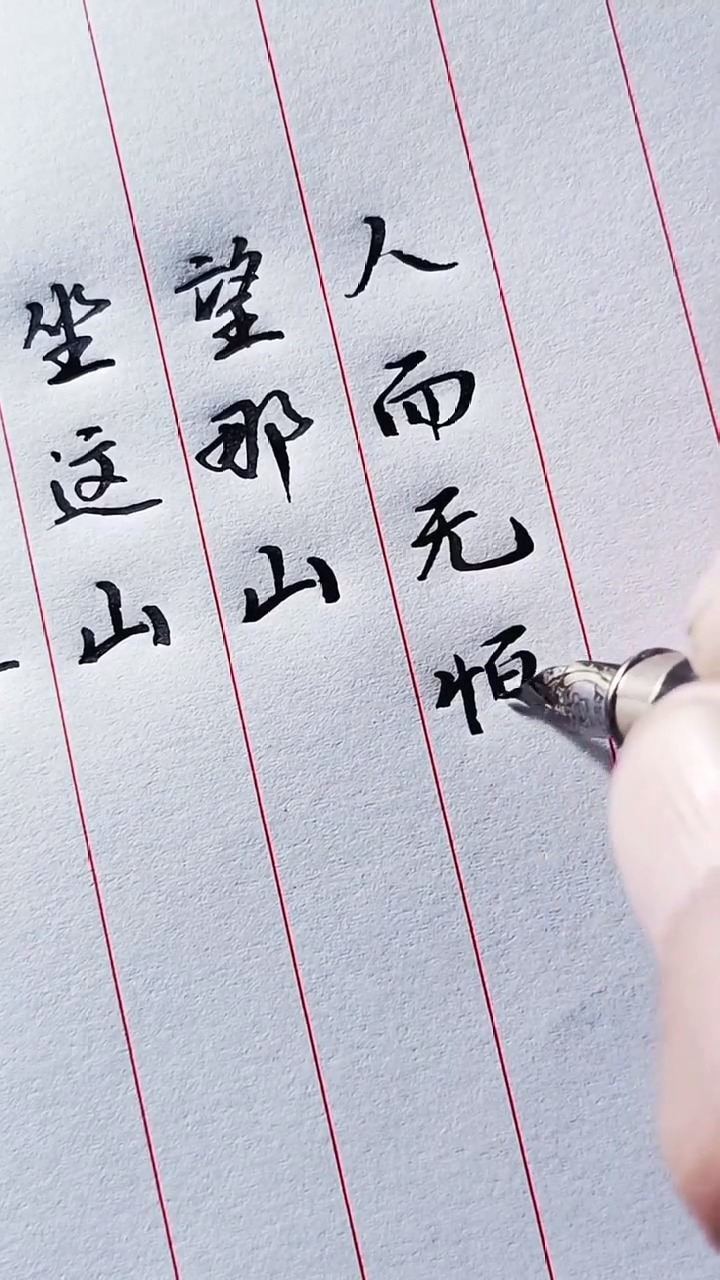 坐这山
望那山
人而无